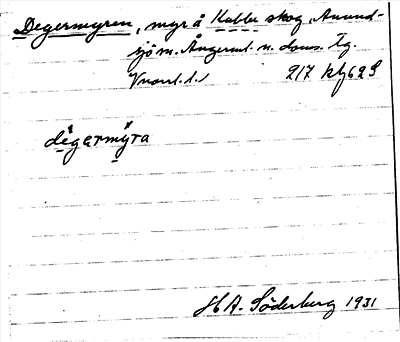 Degermyren, myr å Kubbe skog, Anund-
sjö sn. Ångerml. n. doms. Tg.
Vnorrl. l. 217 kbf 62 S
degarmyra
H A. Söderberg 1931